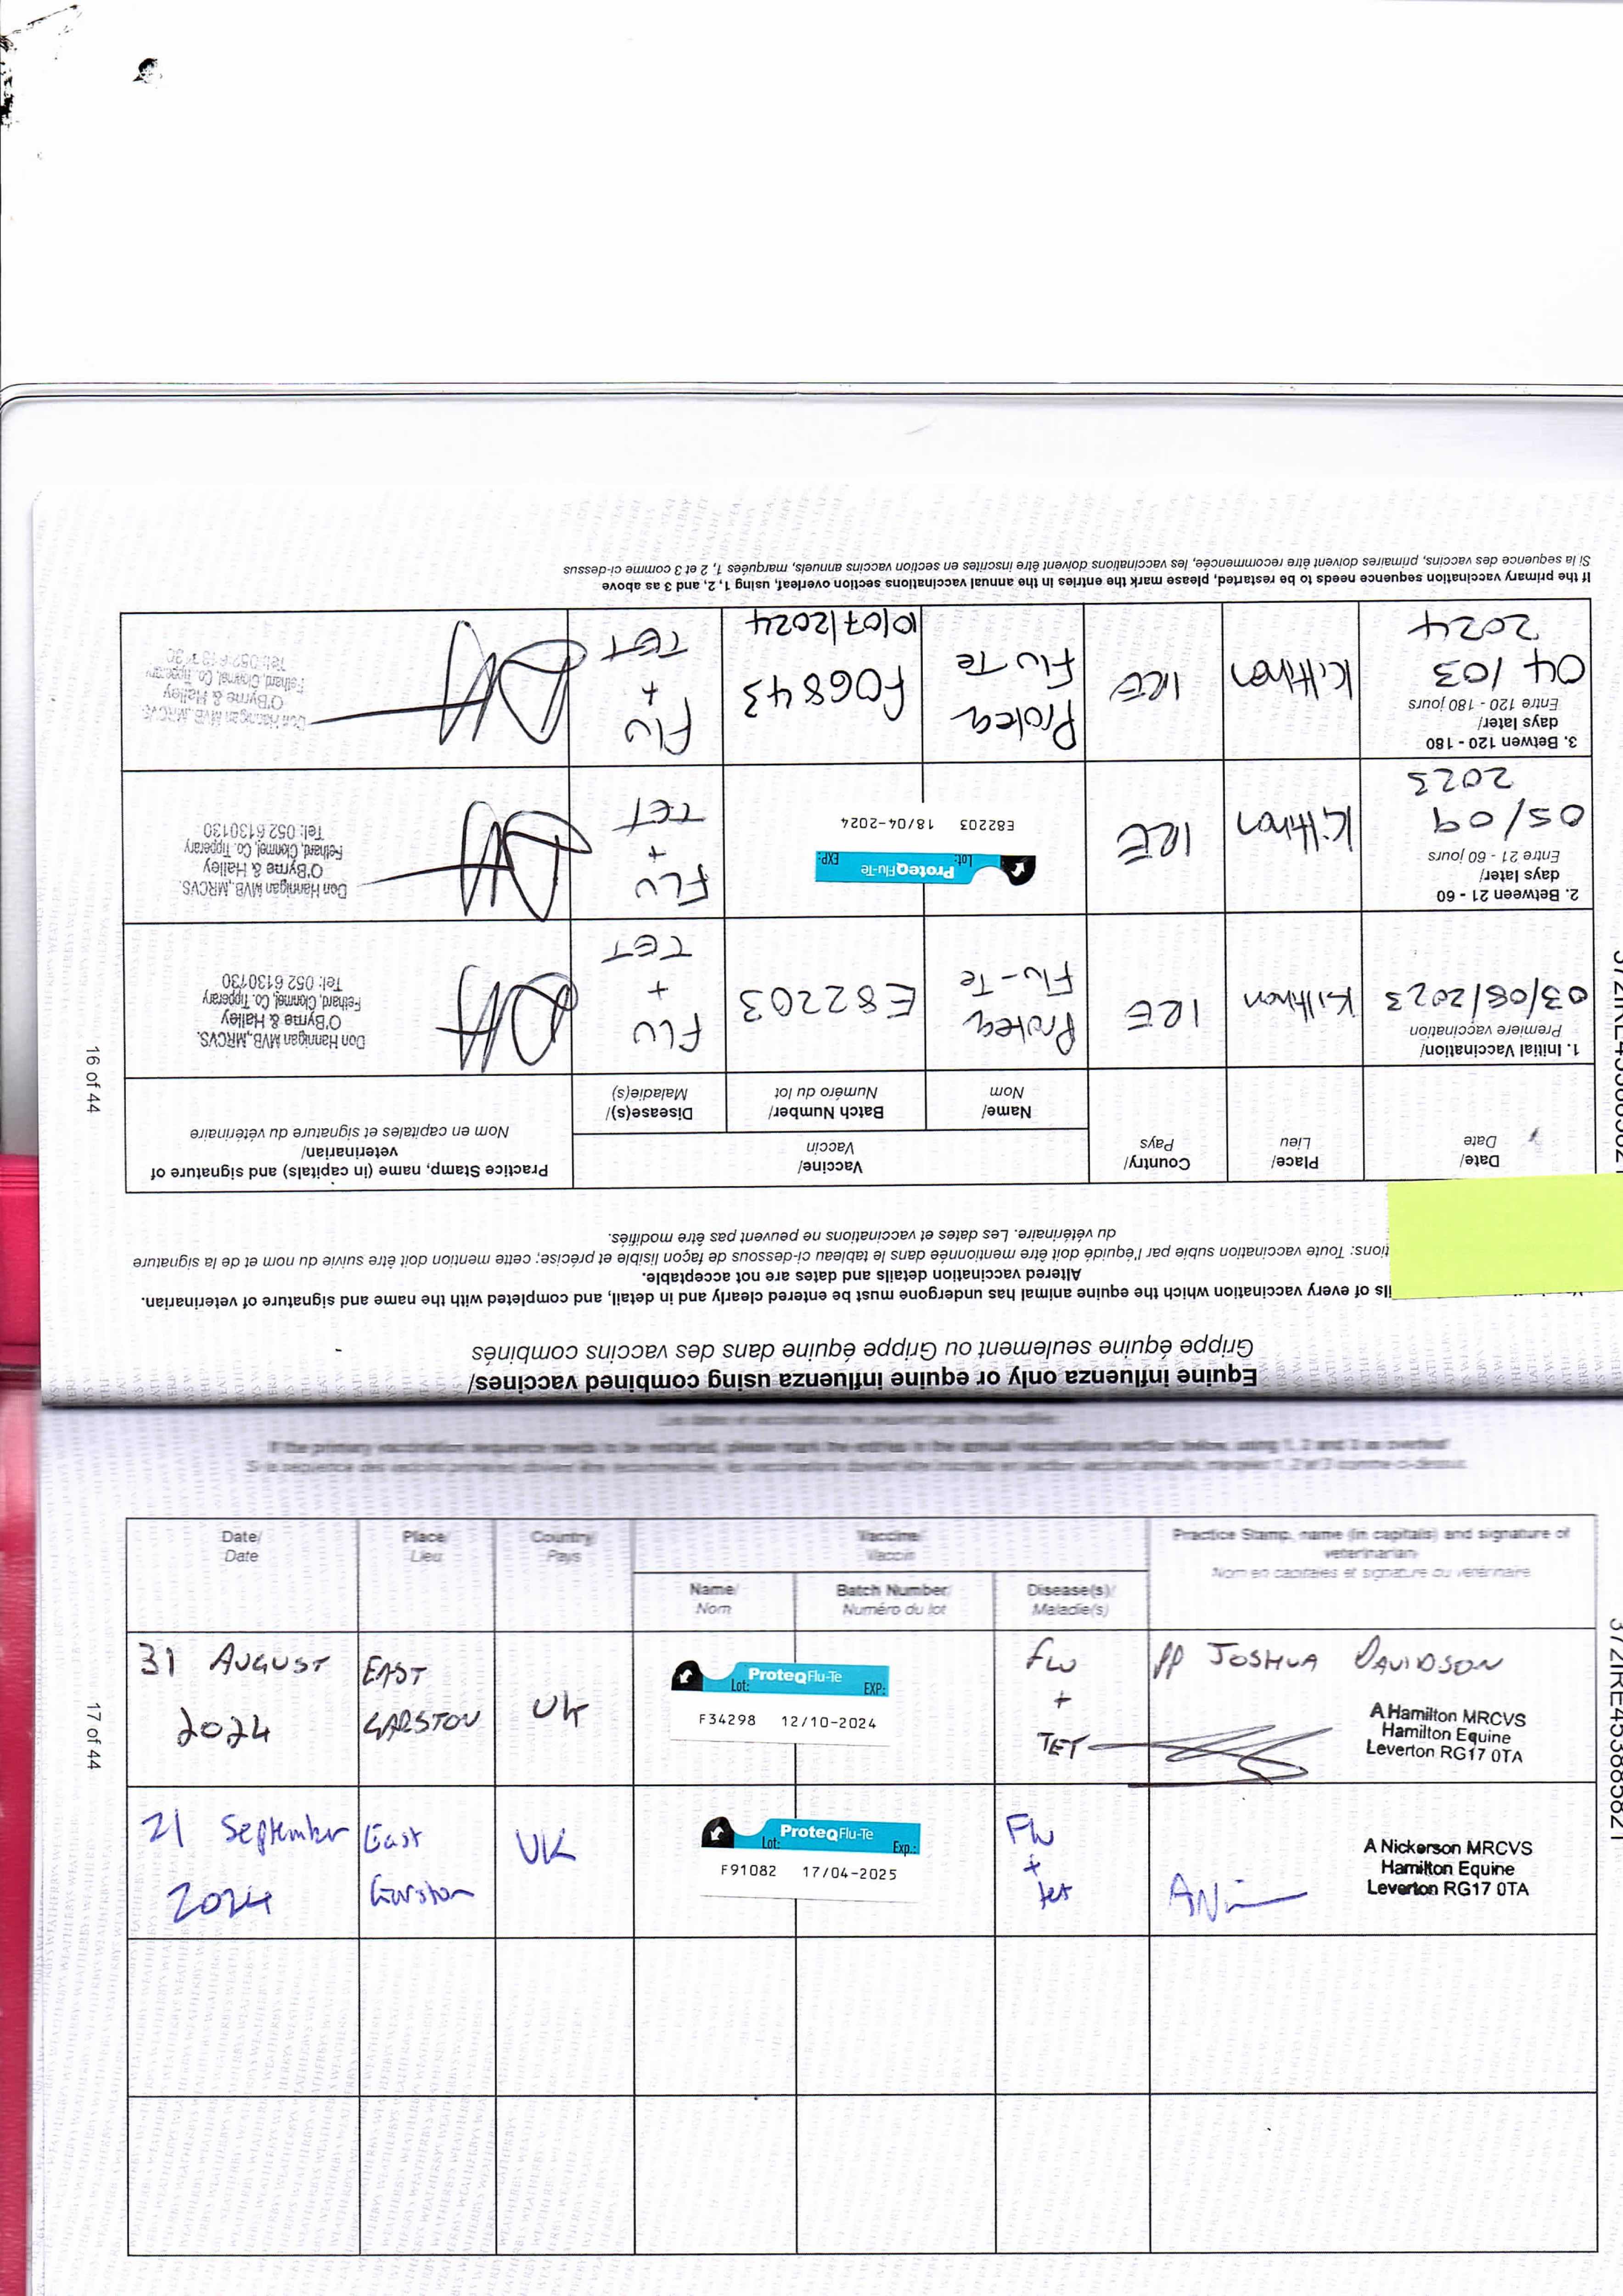 Equine influenza only or equine influenza using combined vaccines/
Grippe équine seulement ou Grippe équine dans des vaccins combinés
ils of every vaccination which the equine animal has undergone must be entered clearly and in detail, and completed with the name and signature of veterinarian.
Altered vaccination details and dates are not acceptable.
tions: Toute vaccination subie par l'équidé doit être mentionnée dans le tableau ci-dessous de façon lisible et précise; cette mention doit être suivie du nom et de la signature
du vétérinaire. Les dates et vaccinations ne peuvent pas être modifiés.
Date/
Date
Place/
Lieu
Country/
Pays
Vaccine/
Vaccin
Name/
Nom
Batch Number/
Numéro du lot
Disease(s)/
Maladie(s)
Practice Stamp, name (in capitals) and signature of
veterinarian/
Nom en capitales et signature du vétérinaire
1. Initial Vaccination/
Premiere vaccination
03/08/2023
Kilthron
IRE
Proteq
Flu-Te
E82203
FLU
+
TET
Don Hannigan MVB, MRCVS.
O'Byrne & Halley
Fethard, Clonmel, Co. Tipperary
Tel: 052 6130130
2. Between 21 - 60
days later/
Entre 21 - 60 jours
05/09
2023
Kilthron
IRE
ProteqFlu-Te
Lot: EXP:
E82203 18/04-2024
FLU
+
TET
Don Hannigan MVB, MRCVS.
O'Byrne & Halley
Fethard, Clonmel, Co. Tipperary
Tel: 052 6130130
3. Betwen 120 - 180
days later/
Entre 120 - 180 jours
04/03
2024
Kilthron
IRE
Proteq
Flu Te
F06843
10/07/2024
FLU
+
TET
Don Hannigan MVB, MRCVS.
O'Byrne & Halley
Fethard, Clonmel, Co. Tipperary
If the primary vaccination sequence needs to be restarted, please mark the entries in the annual vaccinations section overleaf, using 1, 2, and 3 as above
Si la sequence des vaccins, primaires doivent étre recommencée, les vaccinations doivent être inscrites en section vaccins annuels, marquées 1, 2 et 3 comme ci-dessus
16 of 44
If the primary vaccination sequence needs to be restarted, please mark the entries in the annual vaccinations section below, using 1, 2 and 3 as overleaf
Date/
Date
Place/
Lieu
Country/
Pays
Vaccine/
Vaccin
Name/
Nom
Batch Number/
Numéro du lot
Disease(s)/
Maladie(s)
Practice Stamp, name (in capitals) and signature of
veterinarian
Nom en capitales et signature du vétérinaire
31 AUGUST
2024
EAST
GARSTON
UK
ProteqFlu-Te
Lot: EXP:
F34298 12/10-2024
FLU
+
TET
PP JOSHUA DAVIDSON
A Hamilton MRCVS
Hamilton Equine
Leverton RG17 0TA
21 September
2024
East
Garston
UK
ProteqFlu-Te
Lot: Exp.:
F91082 17/04-2025
Flu
+
tet
A Nickerson MRCVS
Hamilton Equine
Leverton RG17 0TA
17 of 44